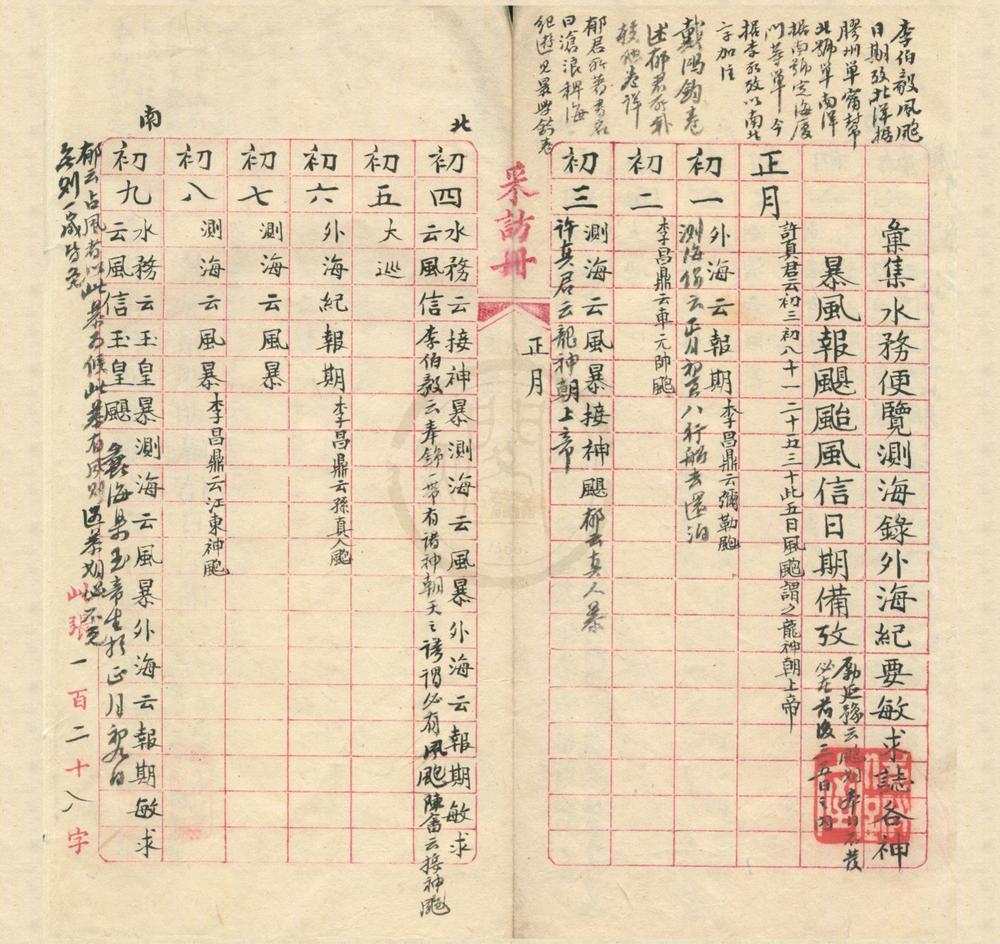 李伯毅風颱
日期攷北洋据
膠州單甯封幫
北號單南洋
据南號定海廈
门等單今
据李所攷以南北
字加注
戴鴻鈞
述郁君
核他卷詳
郁君所著書名
曰滄浪稗海
紀遊見暴
彙集水務便覽測海錄外海紀要敏求誌各神
暴風報颶颱風信日期備攷
勵延豫云颱期本日不發
必在前後三五日之内
正月
許真君云初三初八十一二十五三十此五日風颱謂之龍神朝上帝
初一
外海云報期
李昌鼎云彌勒颱
測海錄云正月初八行船去還泊
初二
李昌鼎云車元帥颱
初三
測海云風暴接神颶
郁云真人暴
許真君云龍神朝上帝
采訪冊
正月
北
初四
水務云接神暴測海云風暴外海云報期敏求
云風信
李伯毅云奉錦一帶有諸神朝天之諺謂必有風颱
陳畬云接神颱
初五
大巡
初六
外海紀報期
李昌鼎云孫真人颱
初七
測海云風暴
初八
測海云風暴
李昌鼎云江東神颱
南
初九
水務云玉皇暴測海云風暴外海云報期敏求
云風信玉皇颶
玉帝生於正月初九日
郁云占風者以此暴為候此暴有風則逐暴
無則一歲皆無
此張一百二十八字